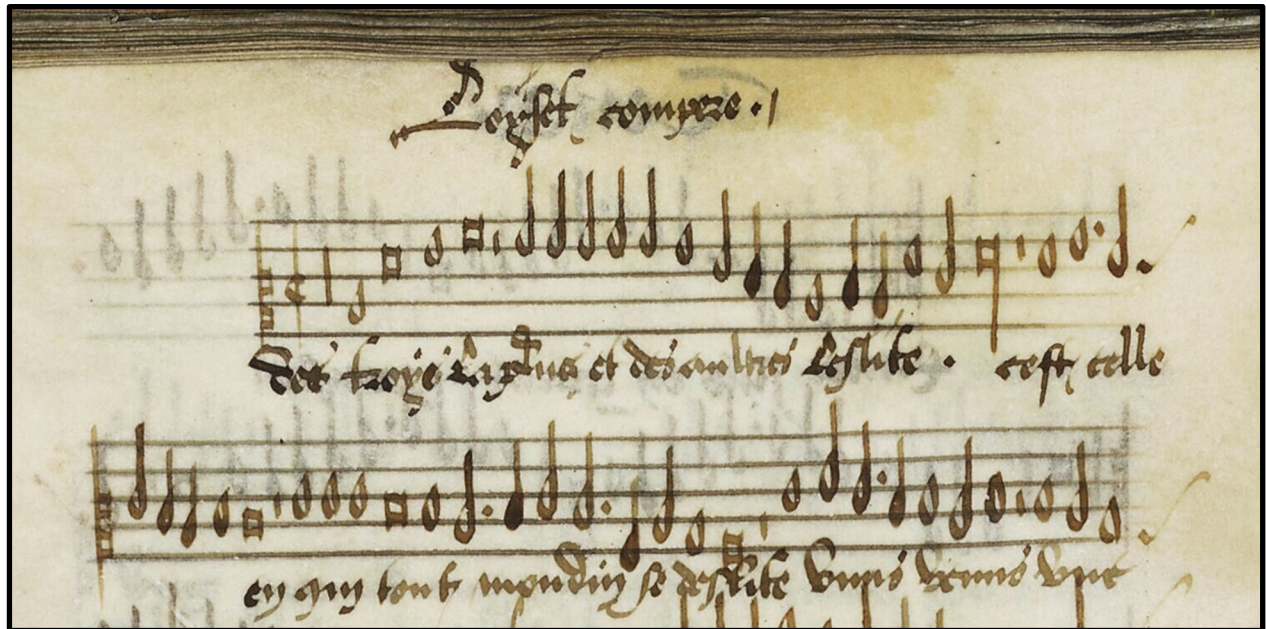 Loyset compere
des troys la plus et des aultres leslite . cest celle
en qui tout mondin se deslite Vnus venus vne